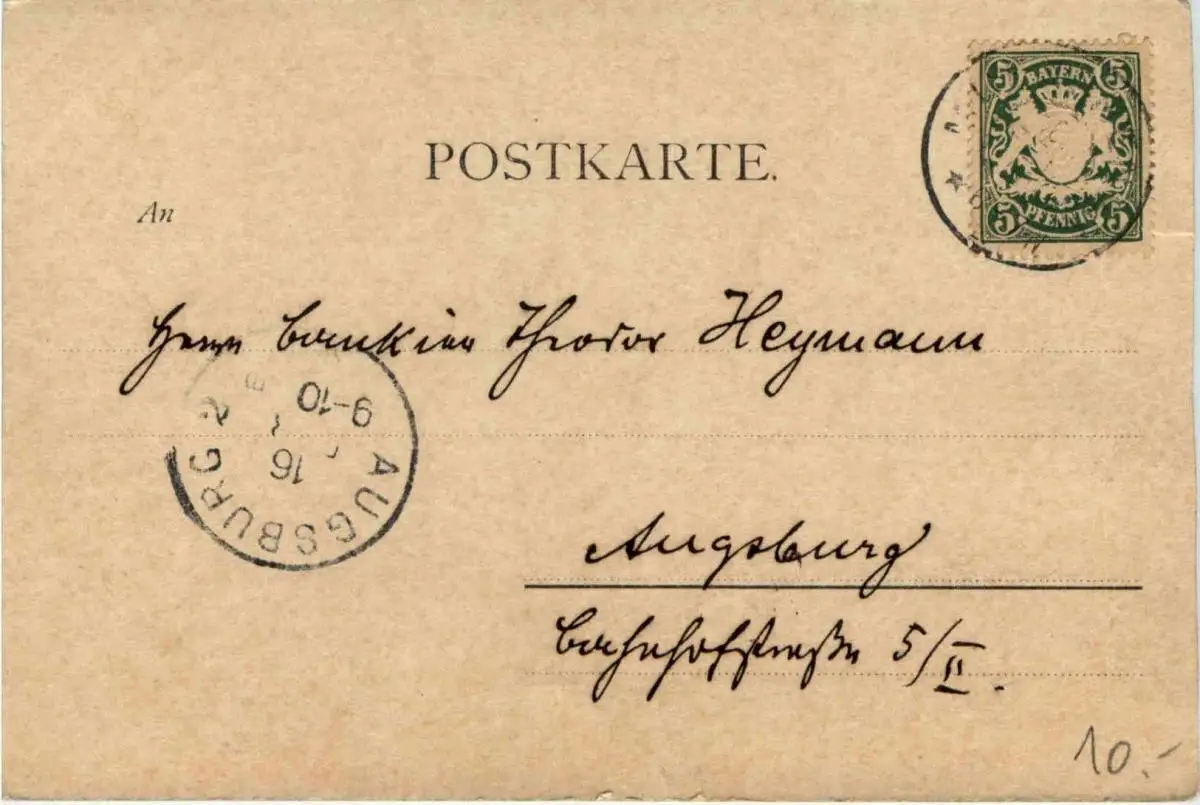 5 BAYERN 5
POSTKARTE.
5 PFENNIG 5
An
Herrn Bankier Theodor Heymann
9-10
16
AUGSBURG 2
Augsburg
Bahnhofstraße 5/II.
10.-